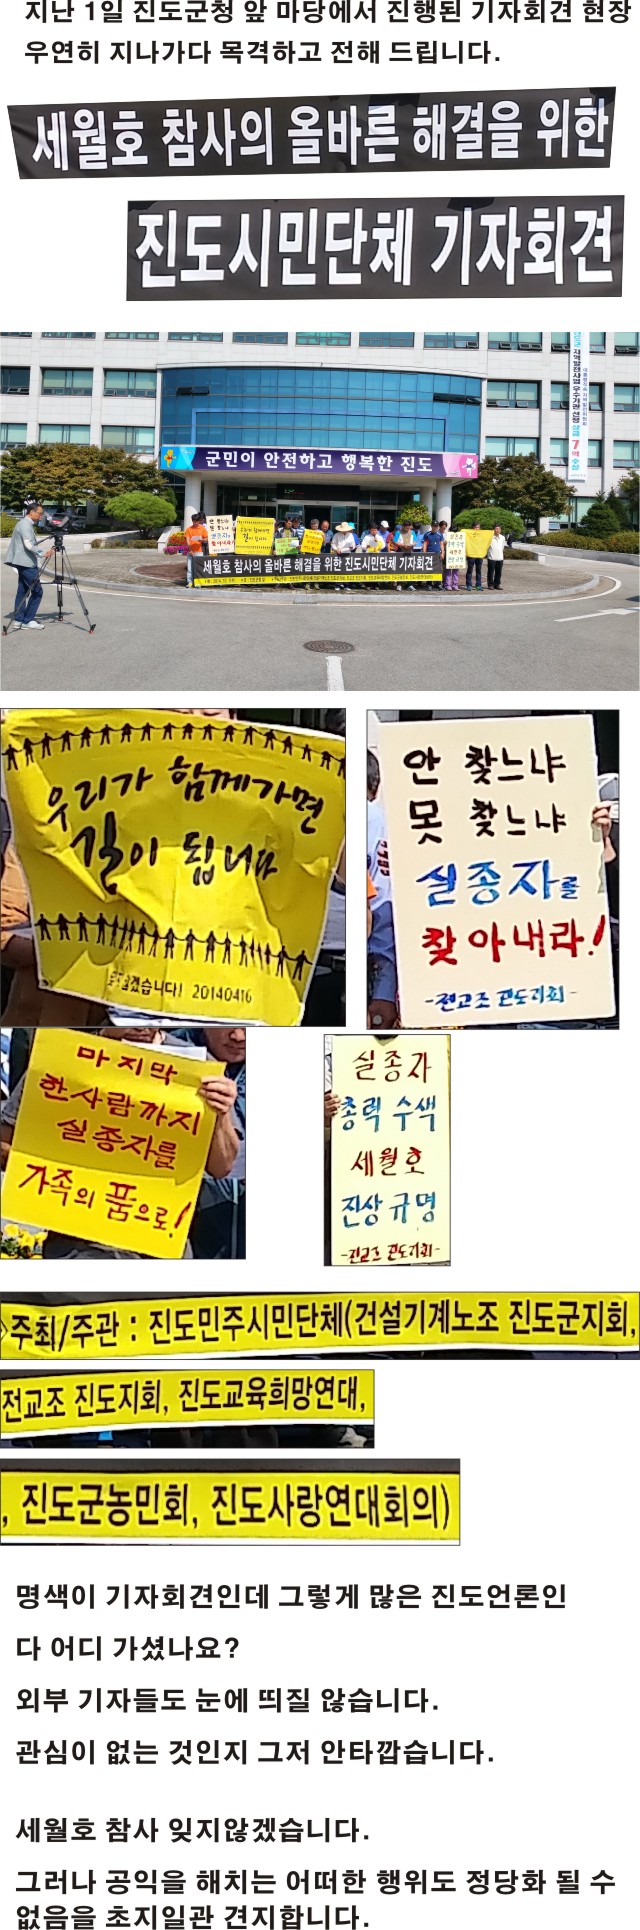 지난 1일 진도군청 앞 마당에서 진행된 기자회견 현장
우연히 지나가다 목격하고 전해 드립니다.
세월호 참사의 올바른 해결을 위한
진도시민단체 기자회견
군민이 안전하고 행복한 진도
세월호 참사의 올바른 해결을 위한 진도시민단체 기자회견
우리가 함께가면
길이 됩니다
잊지않겠습니다! 20140416
안 찾느냐
못 찾느냐
실종자를
찾아내라!
-전교조 진도지회-
마지막
한사람까지
실종자를
가족의 품으로!
실종자
총력 수색
세월호
진상 규명
-전교조 진도지회-
주최/주관 : 진도민주시민단체(건설기계노조 진도군지회,
전교조 진도지회, 진도교육희망연대,
, 진도군농민회, 진도사랑연대회의)
명색이 기자회견인데 그렇게 많은 진도언론인
다 어디 가셨나요?
외부 기자들도 눈에 띄질 않습니다.
관심이 없는 것인지 그저 안타깝습니다.
세월호 참사 잊지않겠습니다.
그러나 공익을 해치는 어떠한 행위도 정당화 될 수
없음을 초지일관 견지합니다.